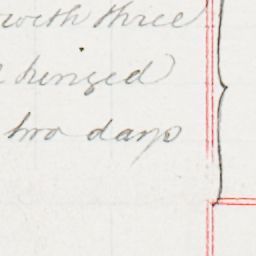 with three
hinged
two days